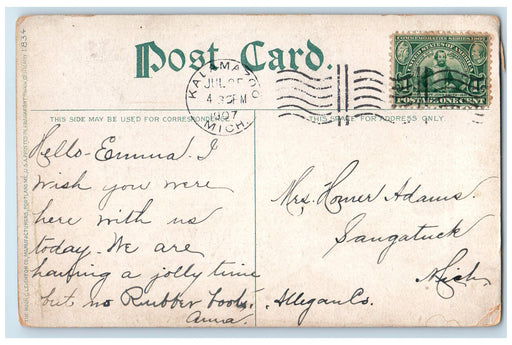 Post Card.
KALAMAZOO
JUL
4 PM
1907
MICH.
COMMEMORATIVE SERIES 1907
UNITED STATES OF AMERICA
POSTAGE ONE CENT
THIS SIDE MAY BE USED FOR CORRESPONDENCE
THIS SPACE FOR ADDRESS ONLY
Hello-Emma. I
wish you were
here with us
today. We are
having a jolly time
but no Rubber boots.
Anna.
Mrs. Homer Adams.
Saugatuck
Mich
Allegan Co.
1834